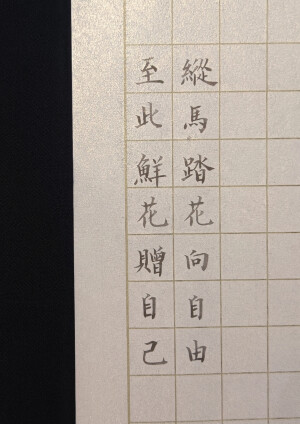 縱馬踏花向自由
至此鮮花贈自己